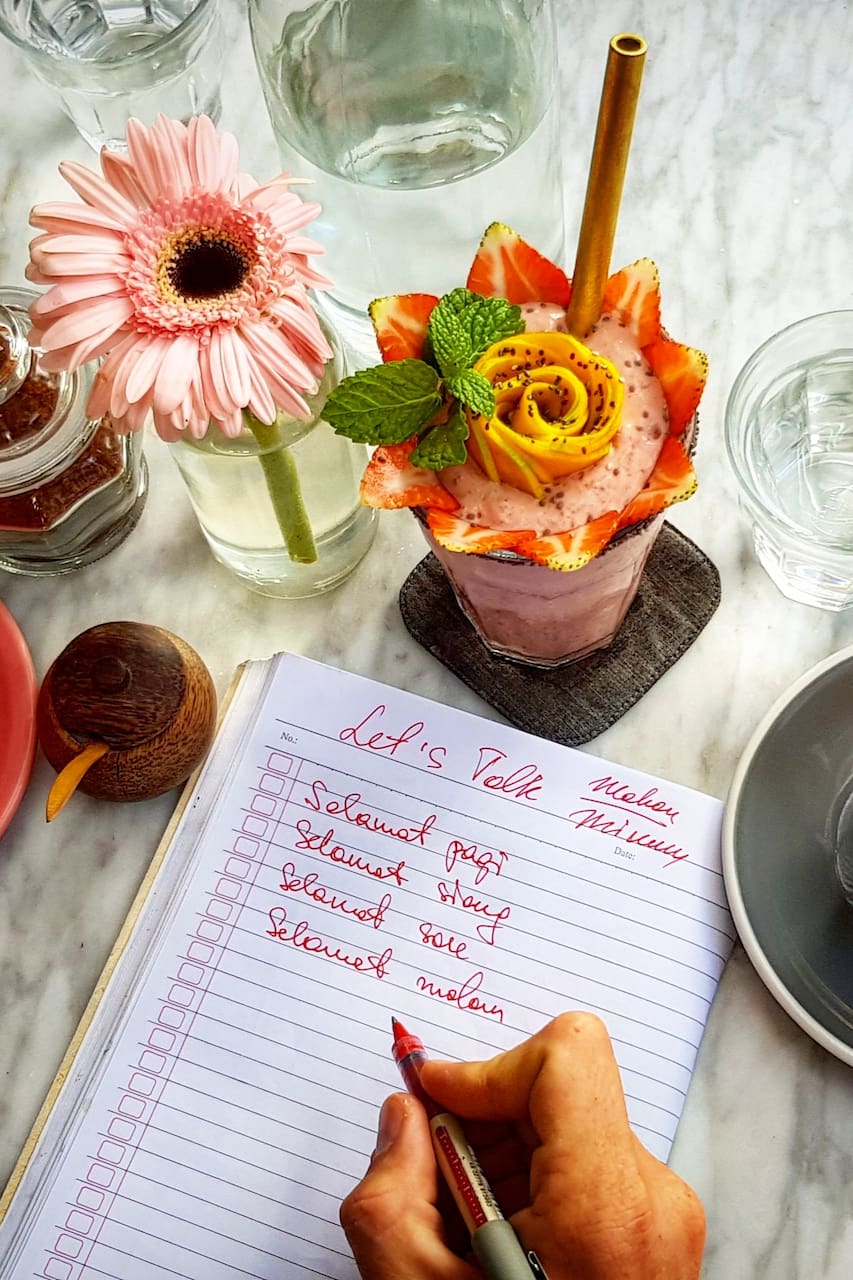 No.:
Let's Talk
makan
minum
Date:
Selamat pagi
Selamat siang
Selamat sore
Selamat malam